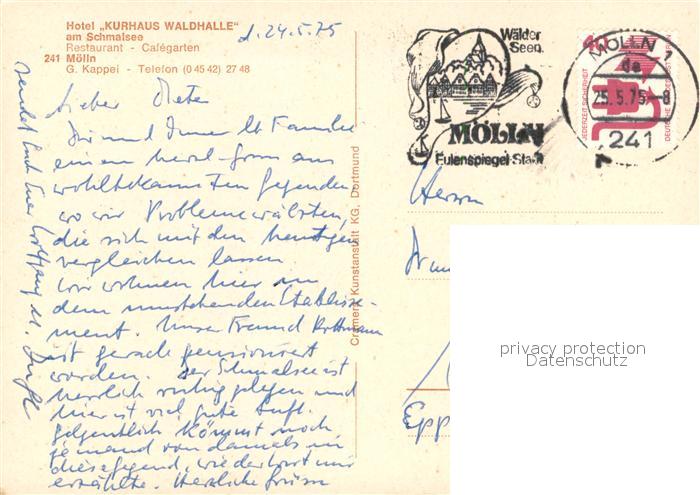 Hotel „KURHAUS WALDHALLE"
am Schmalsee
Restaurant - Cafégarten
241 Mölln
G. Kappei - Telefon (0 45 42) 27 48
d. 24.5.75
Lieber Dieter
Dir und Deiner lb. Familie
einen herzl. Gruss aus
wohlbekannten Gegenden,
wo wir Probleme wälzten,
die sich mit den heutigen
vergleichen lassen
wir wohnen hier in
dem umstehenden Etablisse-
ment. Unser Freund
ist gerade pensioniert
worden. Der Schmalsee ist
herrlich ruhig gelegen und
hier ist viel gute Luft.
gelegentlich kommt noch
jemand von damals in
diese Gegend, wie der Wirt mir
erzählte. Herzliche Grüsse
sendet Euch Euer Wolfgang u.
Cramers Kunstanstalt KG. Dortmund
Wälder
Seen
MÖLLN
Eulenspiegel-Stadt
MÖLLN
da
25.5.75-8
241
JEDERZEIT SICHERHEIT
DEUTSCHE BUNDESPOST
Herrn
Epp
privacy protection
Datenschutz